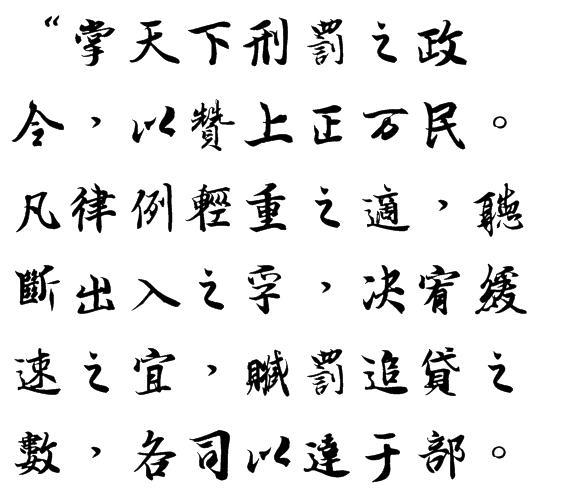 “掌天下刑罰之政
令，以贊上正万民。
凡律例輕重之適，聽
斷出入之孚，决宥緩
速之宜，贓罰追貸之
數，各司以達于部。